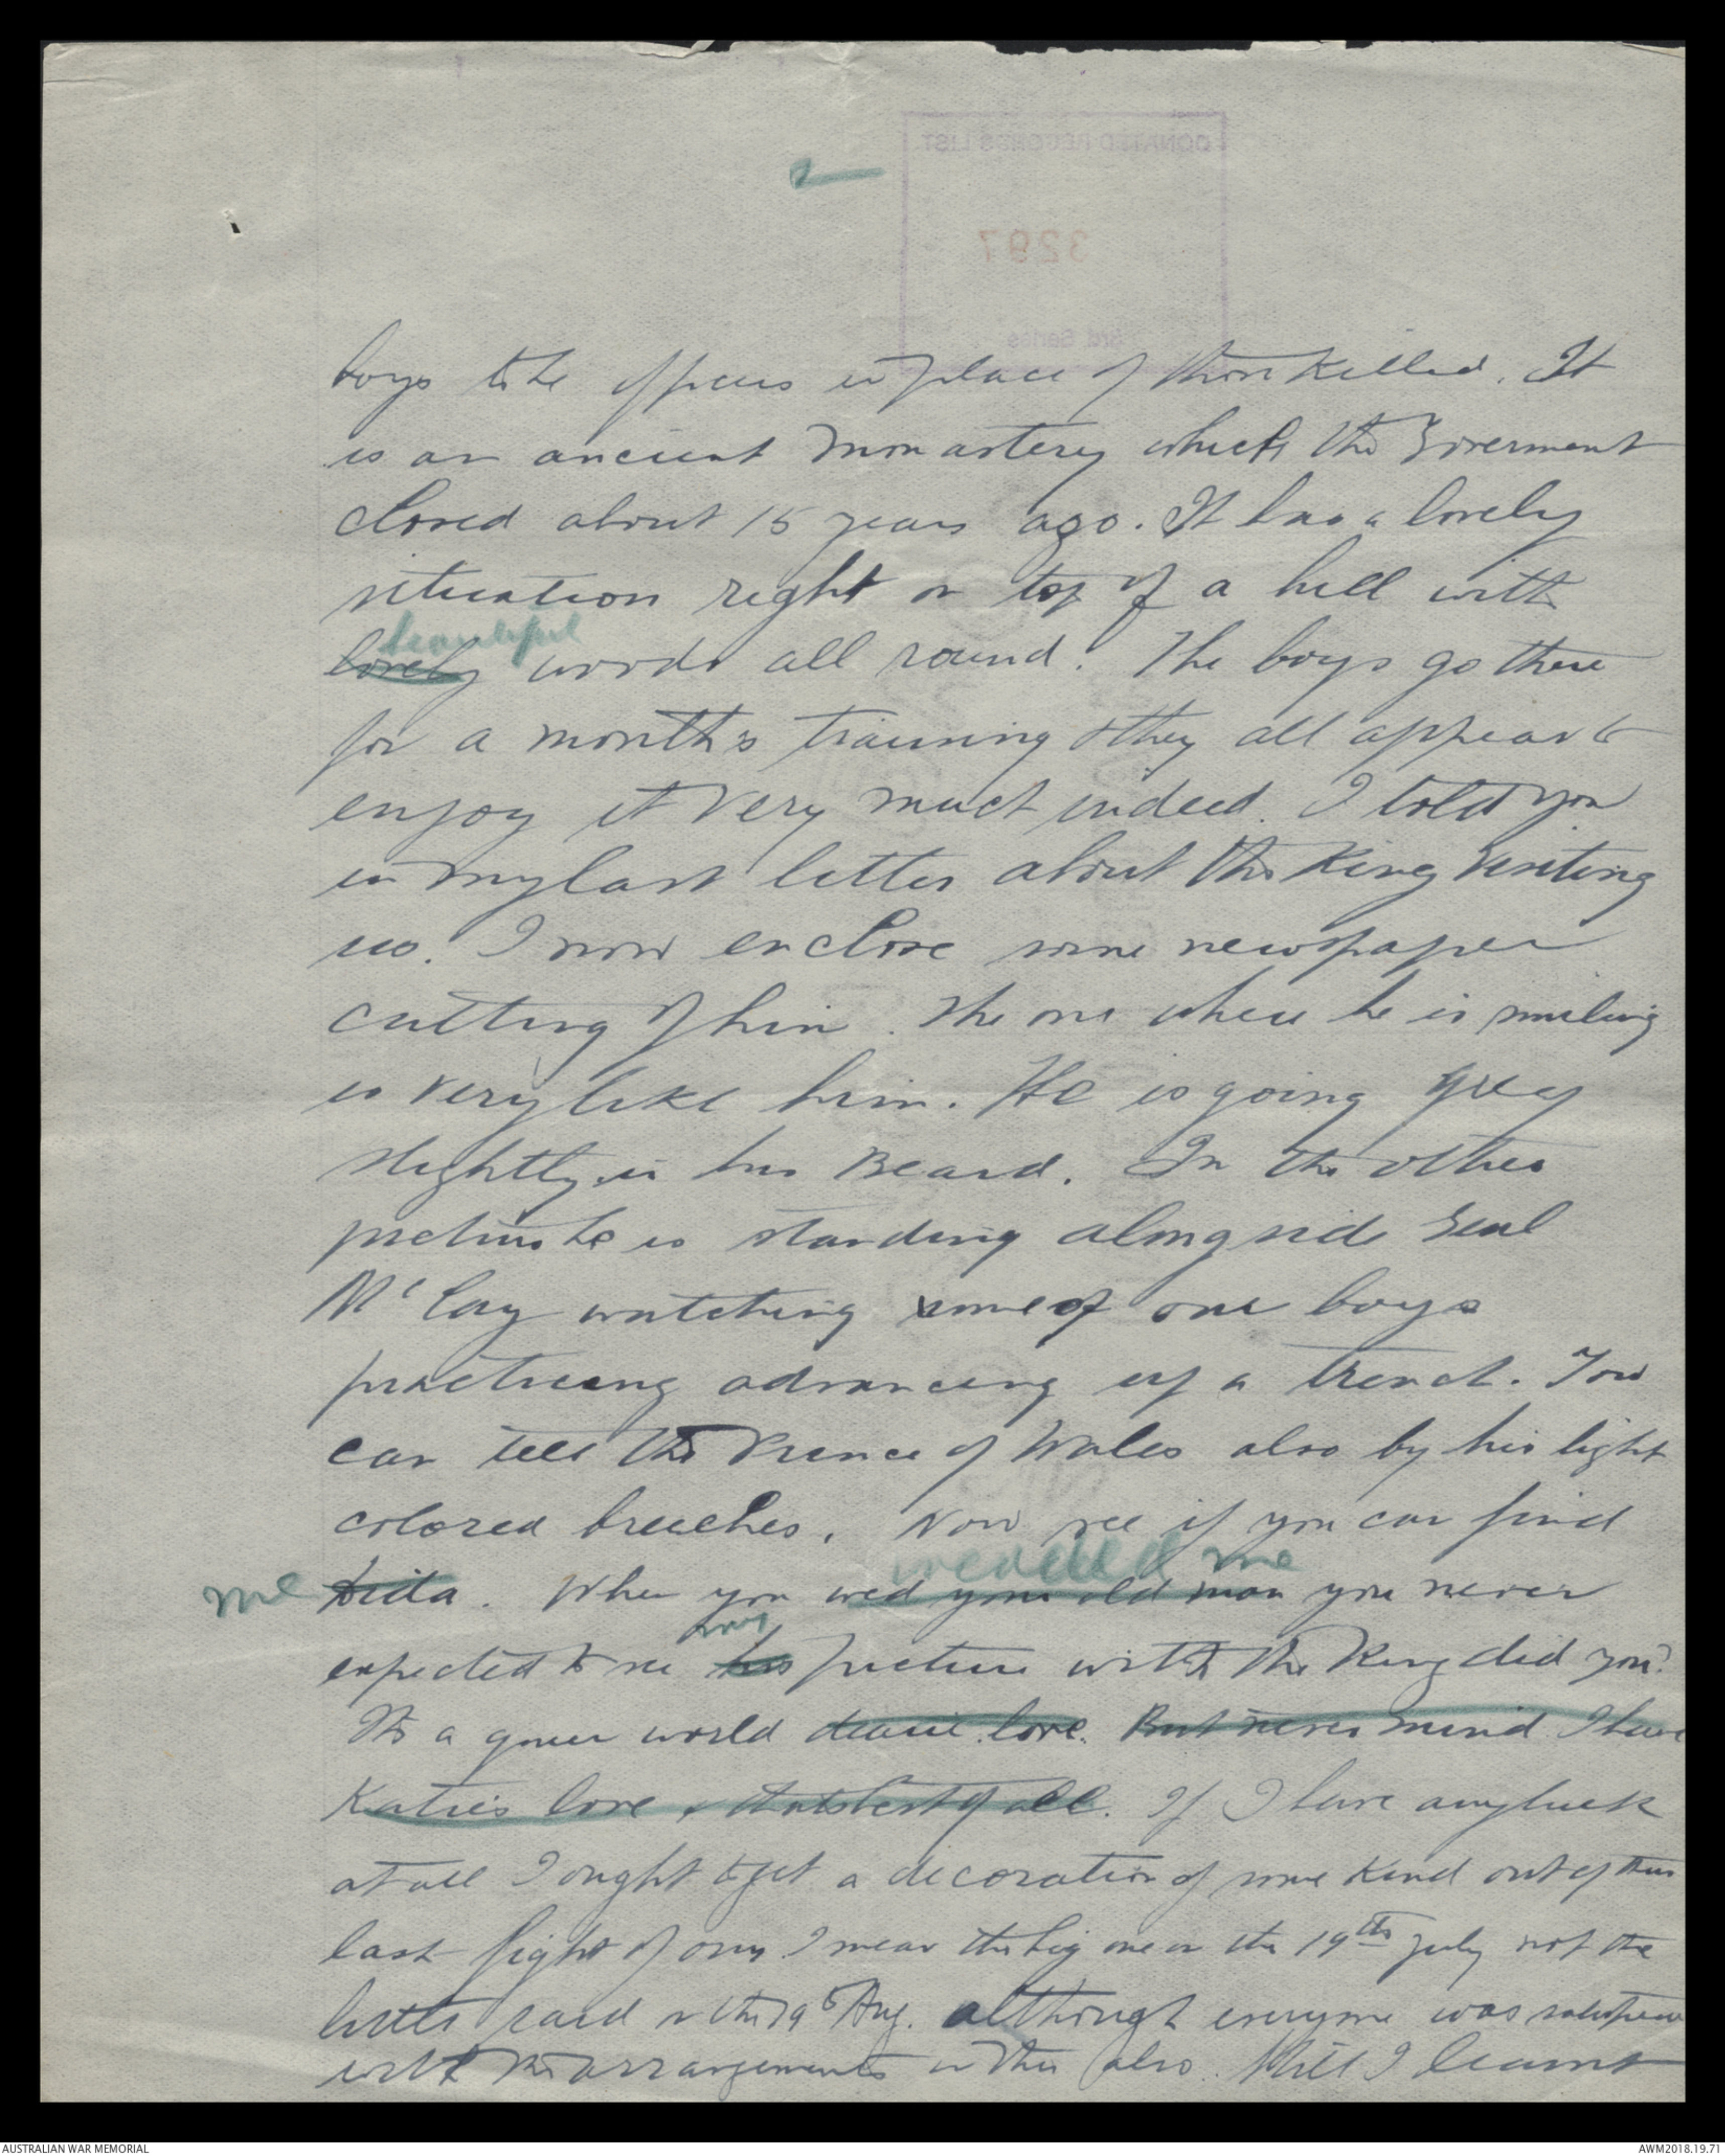 2
DONATED RECORDS LIST
3297
3rd Series
boys to be officers in place of those killed. It
is an ancient monastery which the Goverment
closed about 15 years ago. It has a lovely
situation right on top of a hill with
beautiful
lovely woods all round. The boys go there
for a month's training & they all appear to
enjoy it very much indeed. I told you
in my last letter about the King visiting
us. I now enclose some newspaper
cutting of him. The one where he is smiling
is very like him. He is going grey
slightly in his Beard. In the other
picture he is standing alongside Genl
McCay watching some of our boys
practicing advancing up a trench. You
can tell the Prince of Wales also by his light
colored breeches. Now see if you can find
wedded me
me . When you wed your old man you never
my
expected to see his picture with the King did you?
Its a queer world dearie love. But never mind I have
Katie's love & thats best of all. If I have any luck
at all I ought to get a decoration of some kind out of this
last fight of ours I mean the big one on the 19th July not the
little raid on the 19th Aug. although everyone was
with the arrangements in this also. Still I learnt
AUSTRALIAN WAR MEMORIAL
AWM2018.19.71